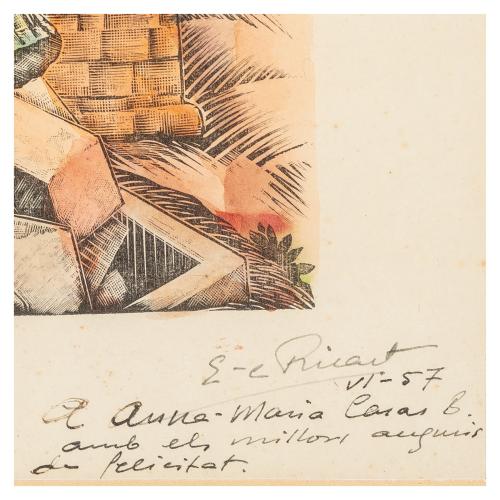 E-C Ricart
VI-57
A Anna-Maria Casas B.
amb els millors auguris
de felicitat.